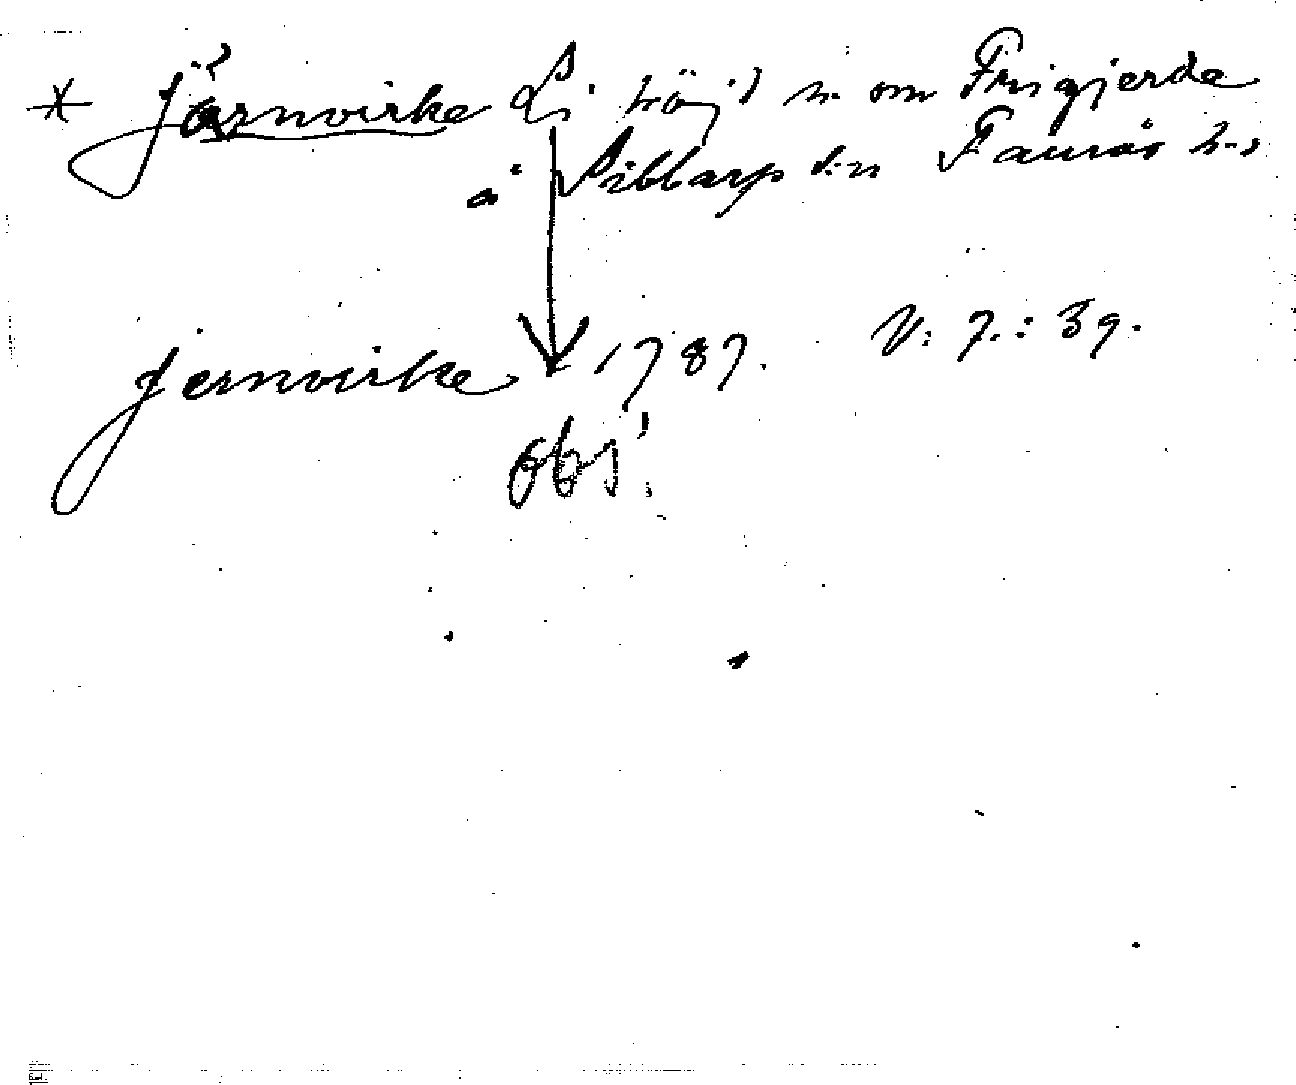 * Järnvirke Li höjd n. om Frigjerde
å Sibbarp s:n Faurås h-d
Jernvirke 1787. V: 7.: 39.
Obs!